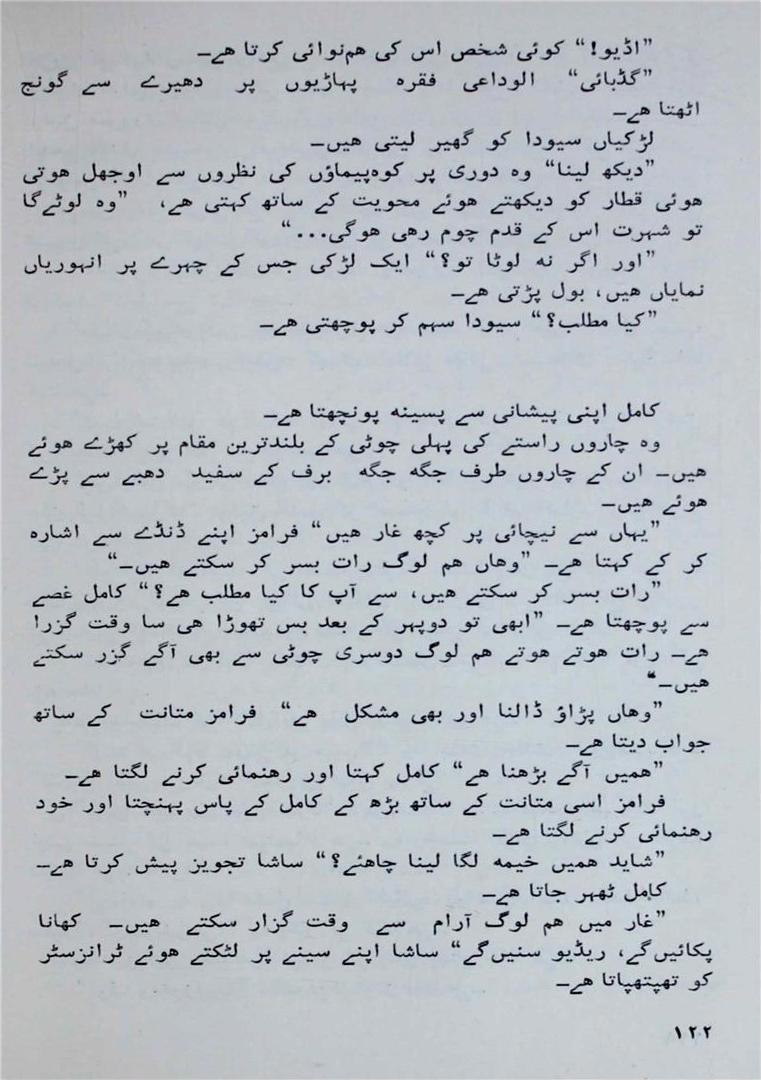 ”اڈیو!“ کوئی شخص اس کی هم‌نوائی کرتا هے۔
”گڈبائی“ الوداعی فقرہ پہاڑیوں پر دھیرے سے گونج
اٹھتا هے۔
لڑکیاں سیودا کو گھیر لیتی هیں۔
”دیکھ لینا“ وہ دوری پر کوہ‌پیماؤں کی نظروں سے اوجھل هوتی
هوئی قطار کو دیکھتے هوئے محویت کے ساتھ کہتی هے، ”وہ لوٹے‌گا
تو شہرت اس کے قدم چوم رهی هوگی...“
”اور اگر نه لوٹا تو؟“ ایک لڑکی جس کے چہرے پر انہوریاں
نمایاں هیں، بول پڑتی هے۔
”کیا مطلب؟“ سیودا سہم کر پوچھتی هے۔
کامل اپنی پیشانی سے پسینه پونچھتا هے۔
وہ چاروں راستے کی پہلی چوٹی کے بلندترین مقام پر کھڑے هوئے
هیں۔ ان کے چاروں طرف جگه جگه برف کے سفید دھبے سے پڑے
هوئے هیں۔
”یہاں سے نیچائی پر کچھ غار هیں“ فرامز اپنے ڈنڈے سے اشارہ
کر کے کہتا هے۔ ”وهاں هم لوگ رات بسر کر سکتے هیں۔“
”رات بسر کر سکتے هیں، سے آپ کا کیا مطلب هے؟“ کامل غصے
سے پوچھتا هے۔ ”ابھی تو دوپہر کے بعد بس تھوڑا هی سا وقت گزرا
هے۔ رات هوتے هوتے هم لوگ دوسری چوٹی سے بھی آگے گزر سکتے
هیں۔“
”وهاں پڑاؤ ڈالنا اور بھی مشکل هے“ فرامز متانت کے ساتھ
جواب دیتا هے۔
”همیں آگے بڑھنا هے“ کامل کہتا اور رهنمائی کرنے لگتا هے۔
فرامز اسی متانت کے ساتھ بڑھ کے کامل کے پاس پہنچتا اور خود
رهنمائی کرنے لگتا هے۔
”شاید همیں خیمه لگا لینا چاهئے؟“ ساشا تجویز پیش کرتا هے۔
کامل ٹھہر جاتا هے۔
”غار میں هم لوگ آرام سے وقت گزار سکتے هیں۔ کھانا
پکائیں‌گے، ریڈیو سنیں‌گے“ ساشا اپنے سینے پر لٹکتے هوئے ٹرانزسٹر
کو تھپتھپاتا هے۔
۱۲۲